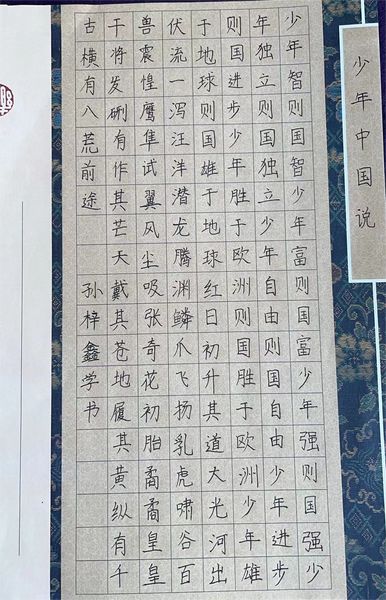 少年中国说
少年智则国智少年富则国富少年强则国强少
年独立则国独立少年自由则国自由少年进步
则国进步少年胜于欧洲则国胜于欧洲少年雄
于地球则国雄于地球红日初升其道大光河出
伏流一泻汪洋潜龙腾渊鳞爪飞扬乳虎啸谷百
兽震惶鹰隼试翼风尘吸张奇花初胎矞矞皇皇
干将发硎有作其芒天戴其苍地履其黄纵有千
古横有八荒前途 孙梓鑫学书